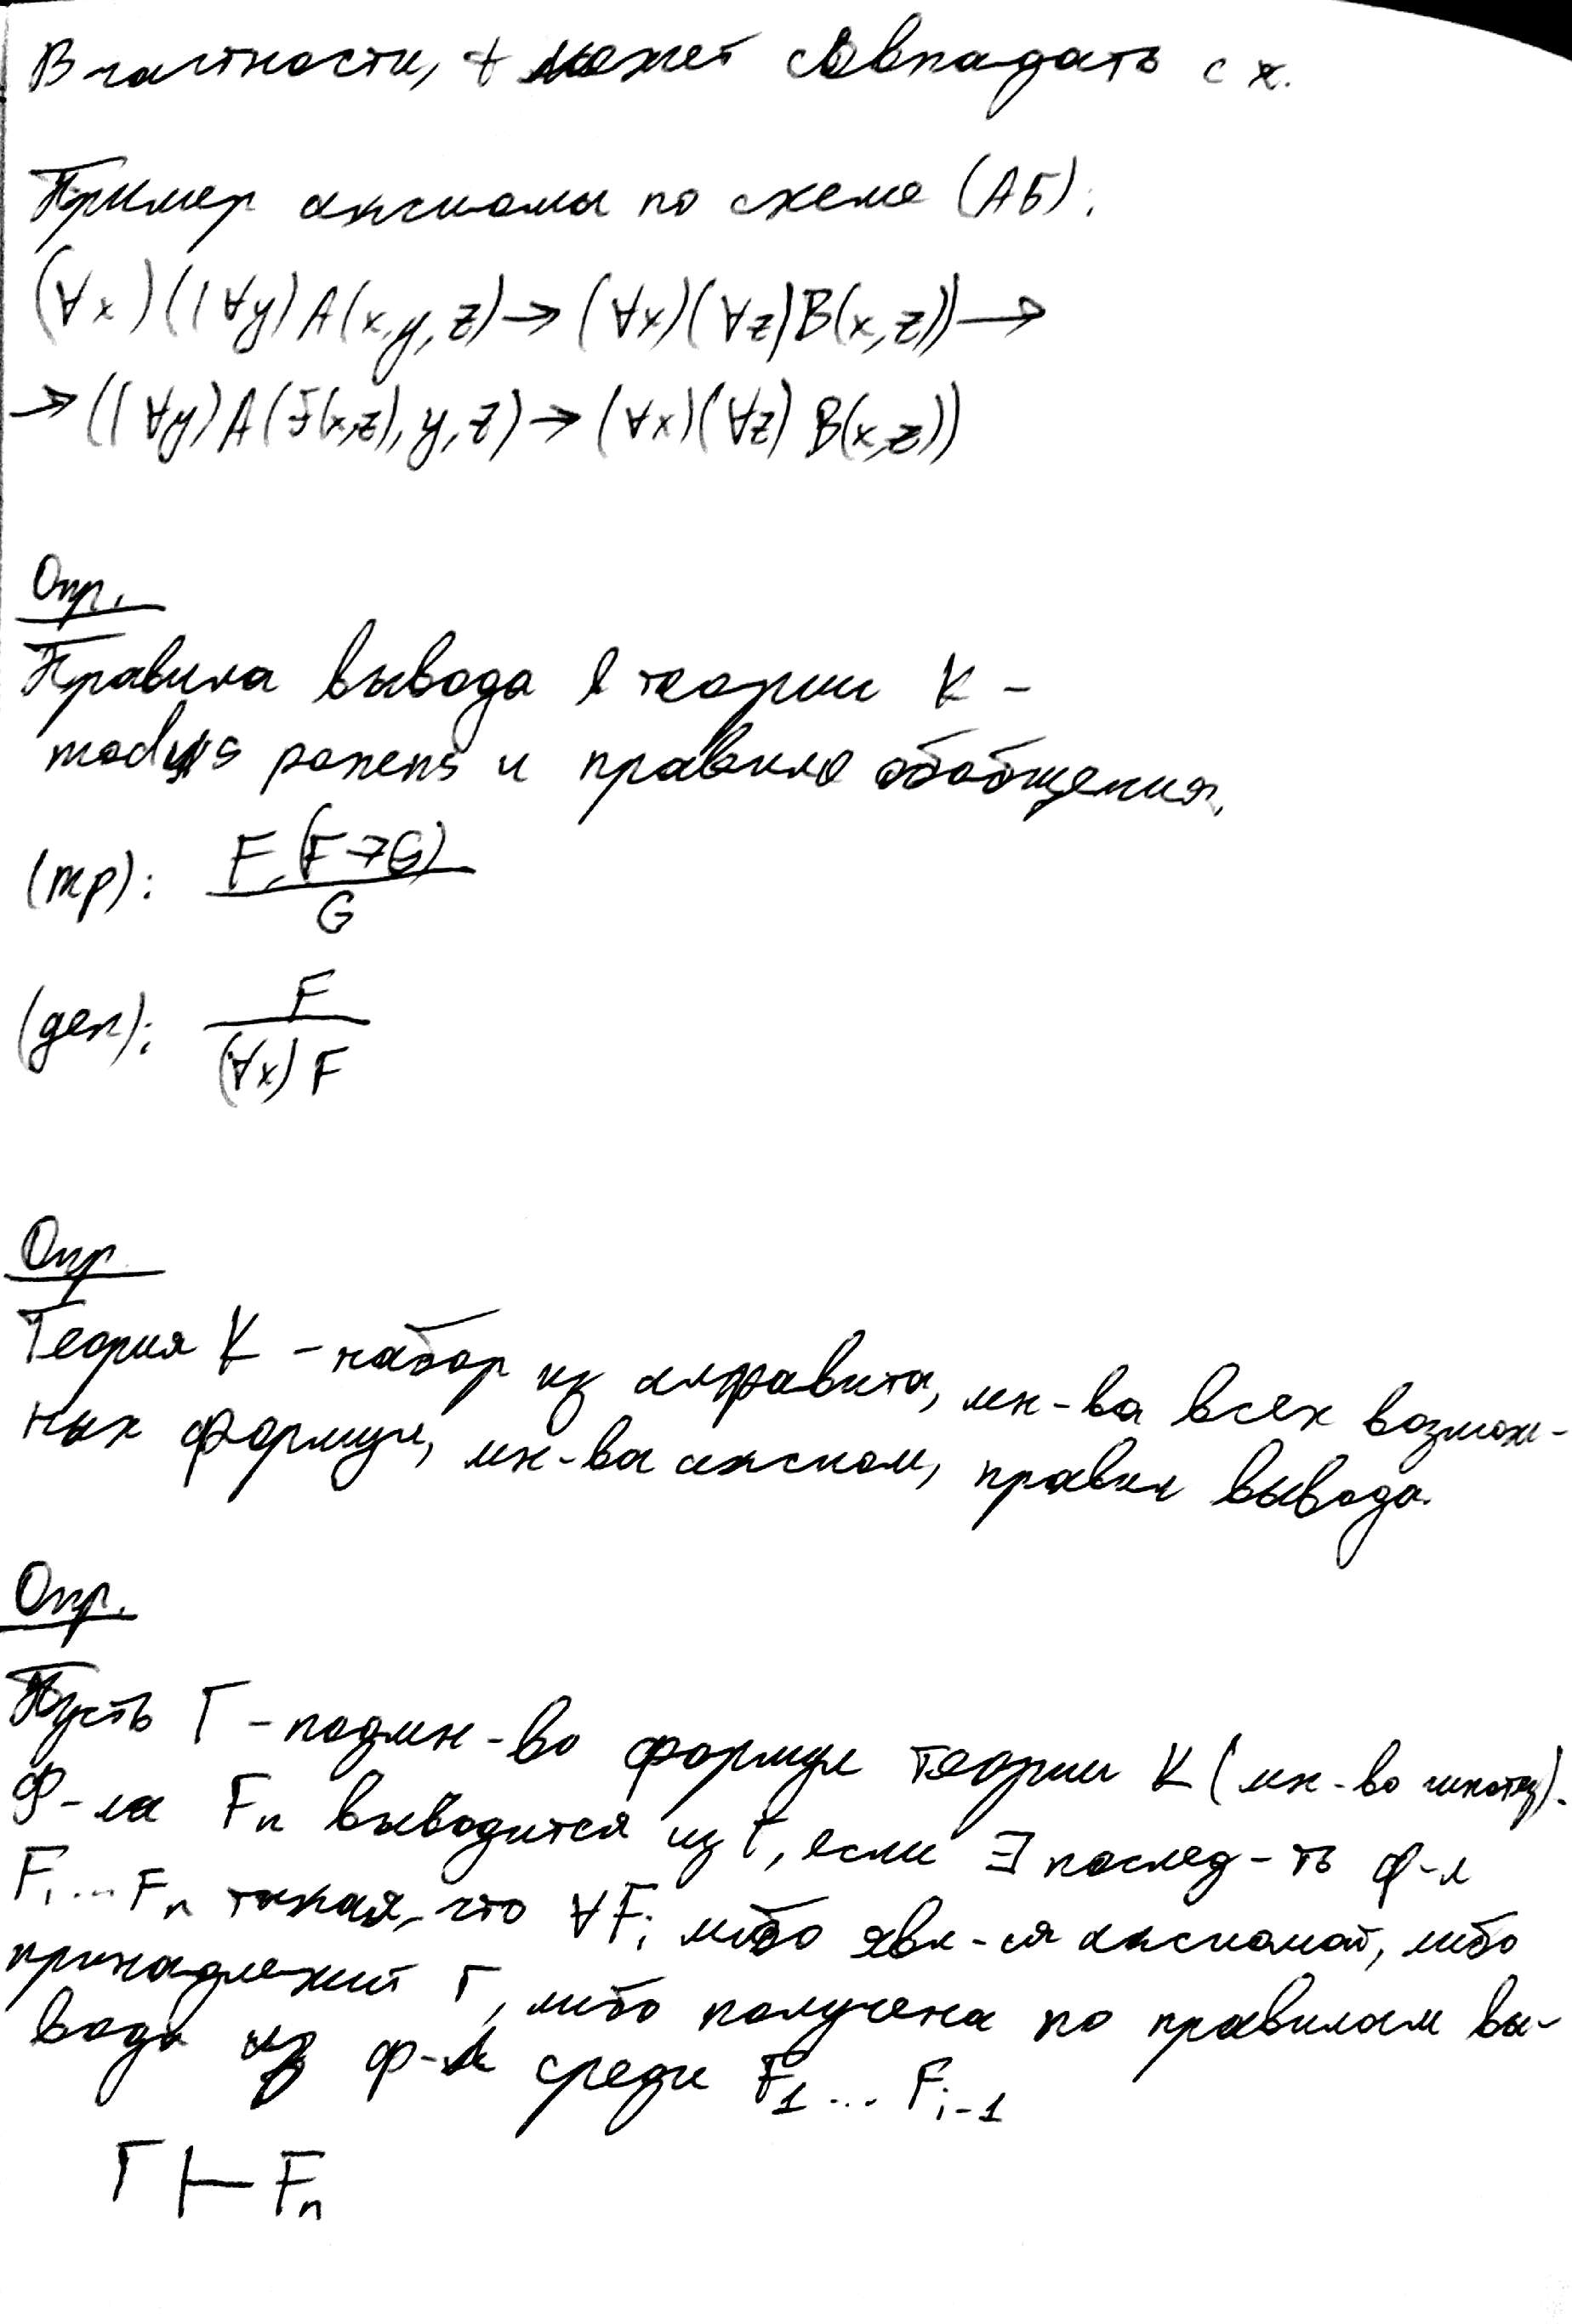 В частности, t может совпадать с x.
Пример аксиомы по схеме (АБ):
(∀x)((∀y)A(x,y,z)→(∀x)(∀z)B(x,z))→
→((∀y)A(f(x,z),y,z)→(∀x)(∀z)B(x,z))
Опр.
Правила вывода в теории K –
modus ponens и правило обобщения.
(mp): F,(F→G)
G
(gen): F
(∀x)F
Опр
Теория K – набор из алфавита, мн-ва всех возмож-
ных формул, мн-ва аксиом, правил вывода.
Опр.
Пусть Γ – подмн-во формул теории K (мн-во гипотез).
Ф-ла Fn выводится из Γ, если ∃ послед-ть ф-л
F1...Fn такая, что ∀Fi либо явл-ся аксиомой, либо
принадлежит Γ, либо получена по правилам вы-
вода из ф-л среди F1...Fi-1
Γ ⊢ Fn